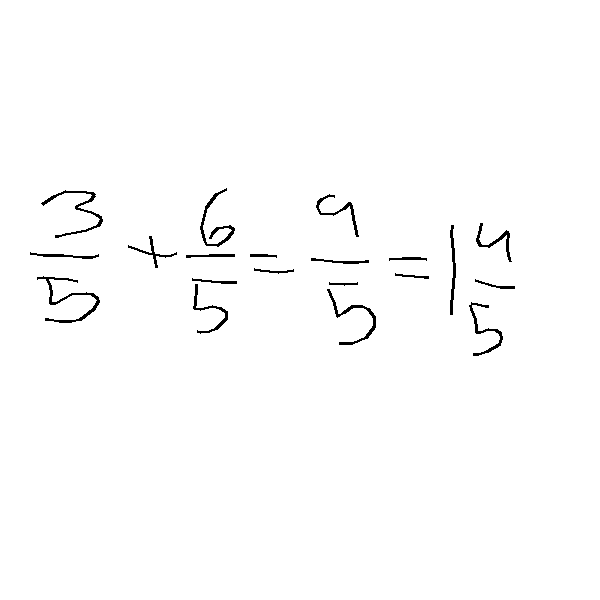 3/5 + 6/5 = 9/5 = 1 4/5